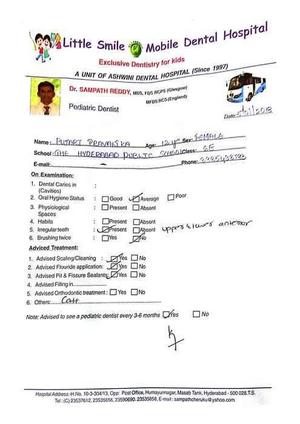 Little Smile Mobile Dental Hospital
Exclusive Dentistry for kids
A UNIT OF ASHWINI DENTAL HOSPITAL (Since 1997)
Dr. SAMPATH REDDY, MDS, FDS RCPS (Glasgow)
MFDS RCS (England)
Pediatric Dentist
Date:
Name: PUJARI Age: 12 yr Sex: FEMALE
School: THE HYDERABAD PUBLIC SCHOOL Class:
E-mail: Phone:
On Examination:
1. Dental Caries in :
(Cavities)
2. Oral Hygiene Status : Good Average Poor
3. Physiological : Present Absent
Spaces
4. Habits : Present Absent
5. Irregular teeth : Present Absent upper & lower anterior
6. Brushing twice : Yes No
Advised Treatment:
1. Advised Scaling/Cleaning : Yes No
2. Advised Flouride application: Yes No
3. Advised Pit & Fissure Sealants: Yes No
4. Advised Filling in
5. Advised Orthodontic treatment : Yes No
6. Others:
Note: Advised to see a pediatric dentist every 3-6 months Yes No
Hospital Address: H.No. 10-3-304/13, Opp: Post Office, Humayunagar, Masab Tank, Hyderabad - 500 028.T.S.
Tel: (C) 23537612, 23535656, 23590690, 23535656, E-mail: sampathcheruku@yahoo.com